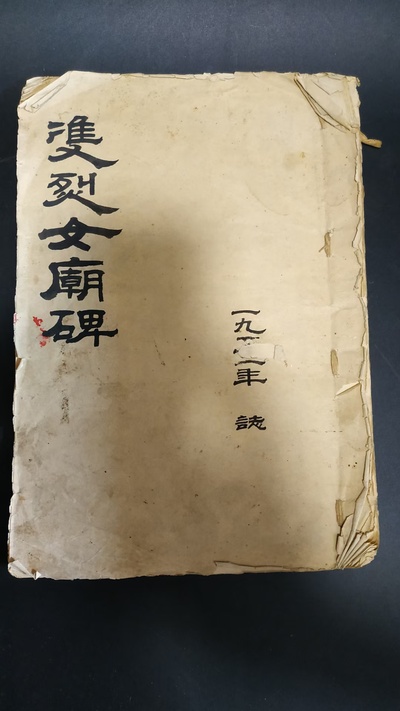 雙烈女廟碑
一九年 誌